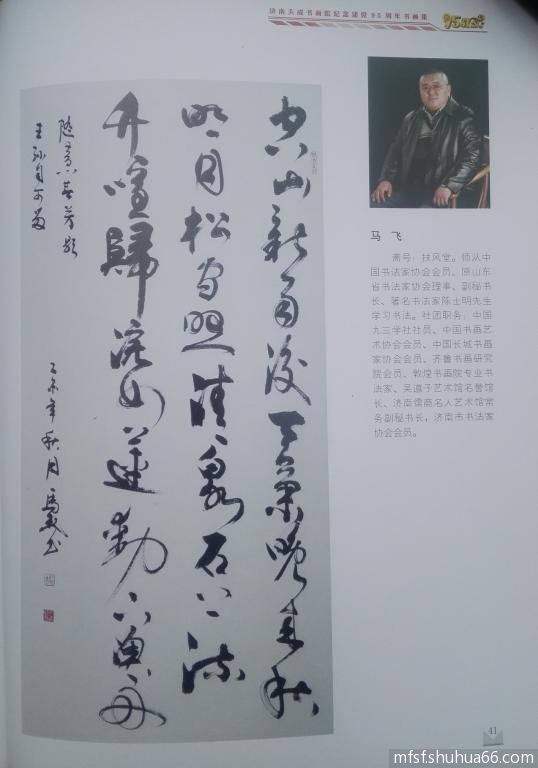 济南天成书画院纪念建党95周年书画集
95
空山新雨後天氣晚来秋
明月松间照清泉石上流
竹喧歸浣女蓮動下魚舟
随意春芳歇
王孙自可留
乙未年秋月馬飛书
马 飞
斋号：扶风堂。师从中
国书法家协会会员、原山东
省书法家协会理事、副秘书
长、著名书法家陈士明先生
学习书法。社团职务：中国
九三学社社员、中国书画艺
术协会会员、中国长城书画
家协会会员、齐鲁书画研究
院会员、敦煌书画院专业书
法家、吴道子艺术馆名誉馆
长、济南儒商名人艺术馆常
务副秘书长，济南市书法家
协会会员。
41
mfsfshuhua66.com